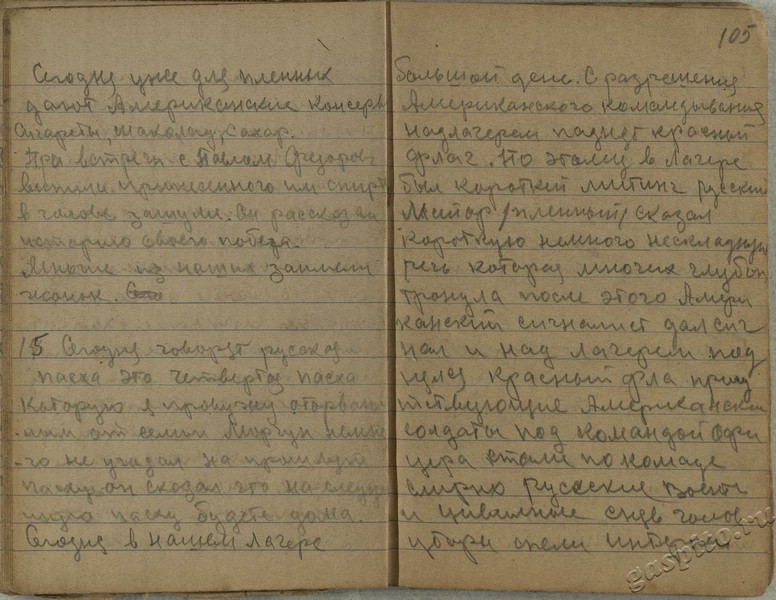 Сегодня уже для пленных
дают Американские консерв
сигареты, шаколад, сахар.
При встречи с Павлом Федоров
выпили принесенного им спирта
в голове зашумело. Он рассказал
историю своего побега.
Многие из наших запмели
жонок.
15 Сегодня говорят русская
пасха это четвертая пасха
которую я провожу оторван
ным от семьи Моргун немно
го не угадал на прошлую
пасху он сказал что на следую
щую пасху будете дома.
Сегодня в нашем лагере
105
большой день. С разрешения
Американского командывания
над лагерем поднят красный
флаг. По этому в лагере
был короткий митинг русский
Майор /пленный/ сказал
короткую немного нескладную
речь которая многих глубоко
тронула после этого Амери
канский сигналист дал сиг
нал и над лагерем под
нулся красный фла прису
тствующие Американские
солдаты под командой офи
цера стали по команде
смирно русские
и цивильные сняв голов
уборы спели интерна
gaspiko.ru